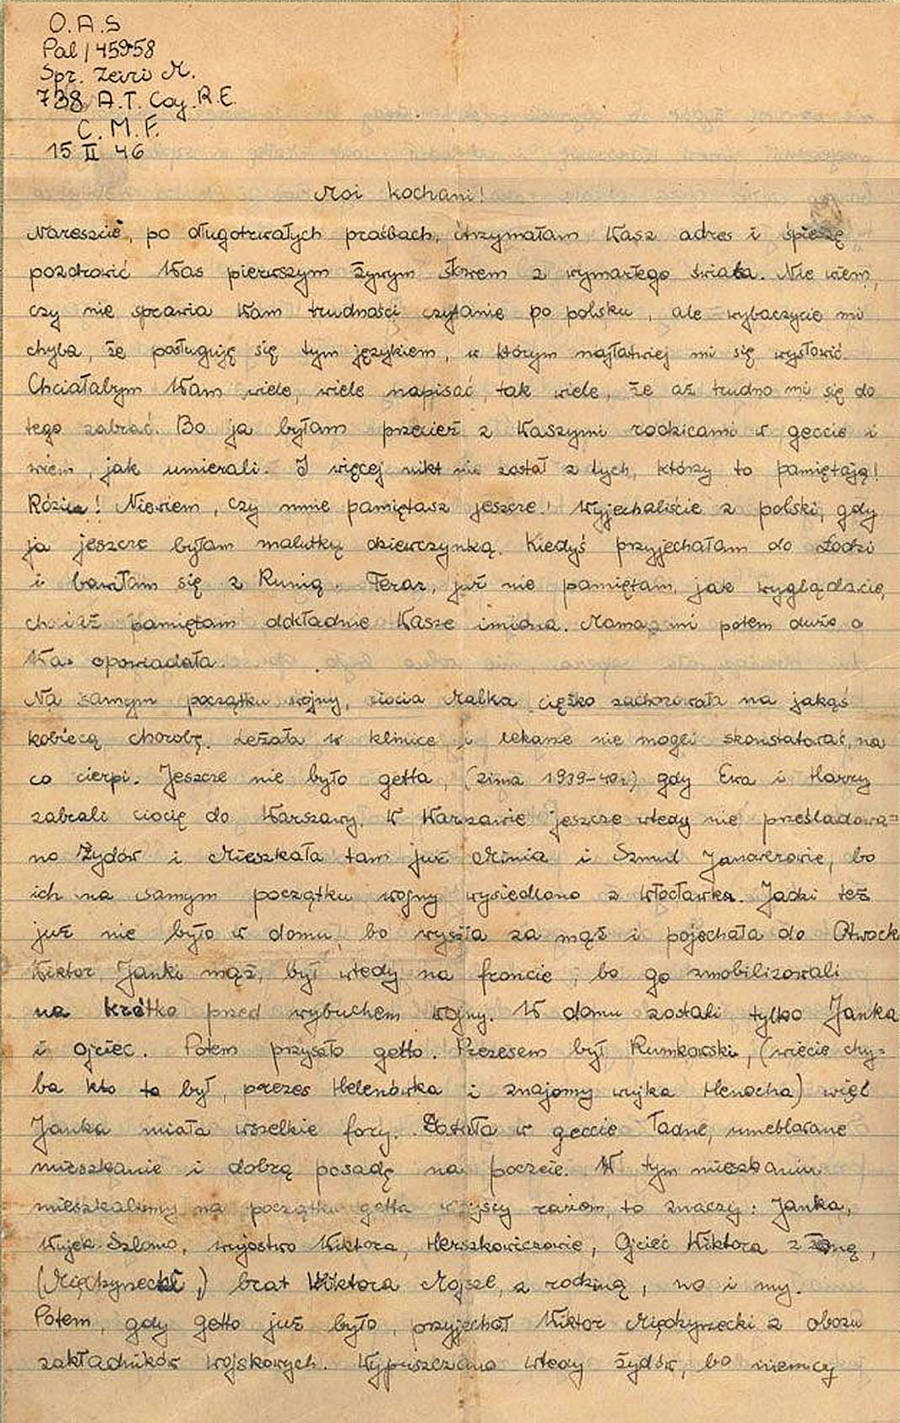 O.A.S
Pal/45958
Spr. Zeiri M.
738 A.T. Coy. R.E.
C.M.F.
15 II 46
Moi kochani!
Nareszcie, po długotrwałych prośbach, otrzymałam Wasz adres i śpieszę
pozdrowić Was pierwszym żywym słowem z wymarłego świata. Nie wiem,
czy nie sprawia Wam trudności czytanie po polsku, ale wybaczycie mi
chyba, że posługuję się tym językiem, w którym najłatwiej mi się wysłowić.
Chciałabym Wam wiele, wiele napisać, tak wiele, że aż trudno mi się do
tego zabrać. Bo ja byłam przecież z Waszymi rodzicami w geccie i
wiem, jak umierali. I więcej nikt nie został z tych, którzy to pamiętają!
Rózia! Niewiem, czy mnie pamiętasz jeszcze! Wyjechaliście z polski, gdy
ja jeszcze byłam malutką dziewczynką. Kiedyś przyjechałam do Łodzi
i bawiłam się z Runią. Teraz, już nie pamiętam, jak wyglądacie,
chociaż pamiętam dokładnie Wasze imiona. Mama mi potem dużo o
Was opowiadała.
Na samym początku wojny, ciocia Malka ciężko zachorowała na jakąś
kobiecą chorobę. Leżała w klinice i lekarze nie mogli skonstatować, na
co cierpi. Jeszcze nie było getta, (zima 1939-40r) gdy Ewa i Harry
zabrali ciocię do Warszawy. W Warzawie jeszcze wtedy nie prześladowa=
no Żydów i Mieszkała tam już Minia i Szmul Janowerowie, bo
ich na samym początku wojny wysiedlono z Włocławka. Jadzi też
już nie było w domu, bo wyszła za mąż i pojechała do Otwock
Wiktor, Janki mąż, był wtedy na froncie, bo go zmobilizowali
na krótko przed wybuchem wojny. W domu zostali tylko Janka
i ojciec. Potem przyszło getto. Prezesem był Rumkowski, (wiecie chy=
ba kto to był, prezes Helenówka i znajomy wujka Henocha) więc
Janka miała wszelkie fory. Dostała w geccie ładne, umeblowane
mieszkanie i dobrą posadę na poczcie. W tym mieszkaniu
mieszkaliśmy na początku getta wszyscy razem, to znaczy: Janka,
Wujek Szlomo, wujostwo Wiktora, Herszkowiczowie, Ojciec Wiktora z żoną,
(Międzyrzecki,) brat Wiktora Mojsel, z rodziną, no i my.
Potem, gdy getto już było, przyjechał Wiktor Międzyrzecki z obozu
zakładników wojskowych. Wypuszczano wtedy żydów, bo niemcy